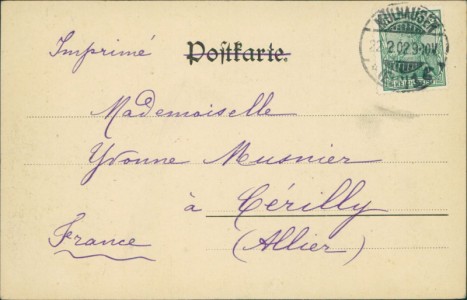 Imprimé
Postkarte.
MÜLHAUSEN
22 2 02 9-10V
Mademoiselle
Yvonne Musnier
à Cérilly
(Allier)
France